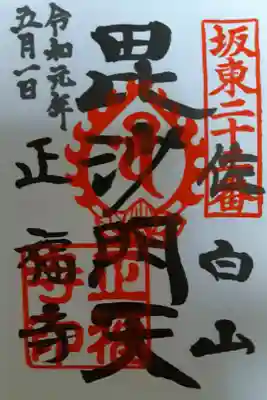 坂東二十三番
佐白山
毘沙門天
令和元年
五月一日
正福寺
正福
寺印